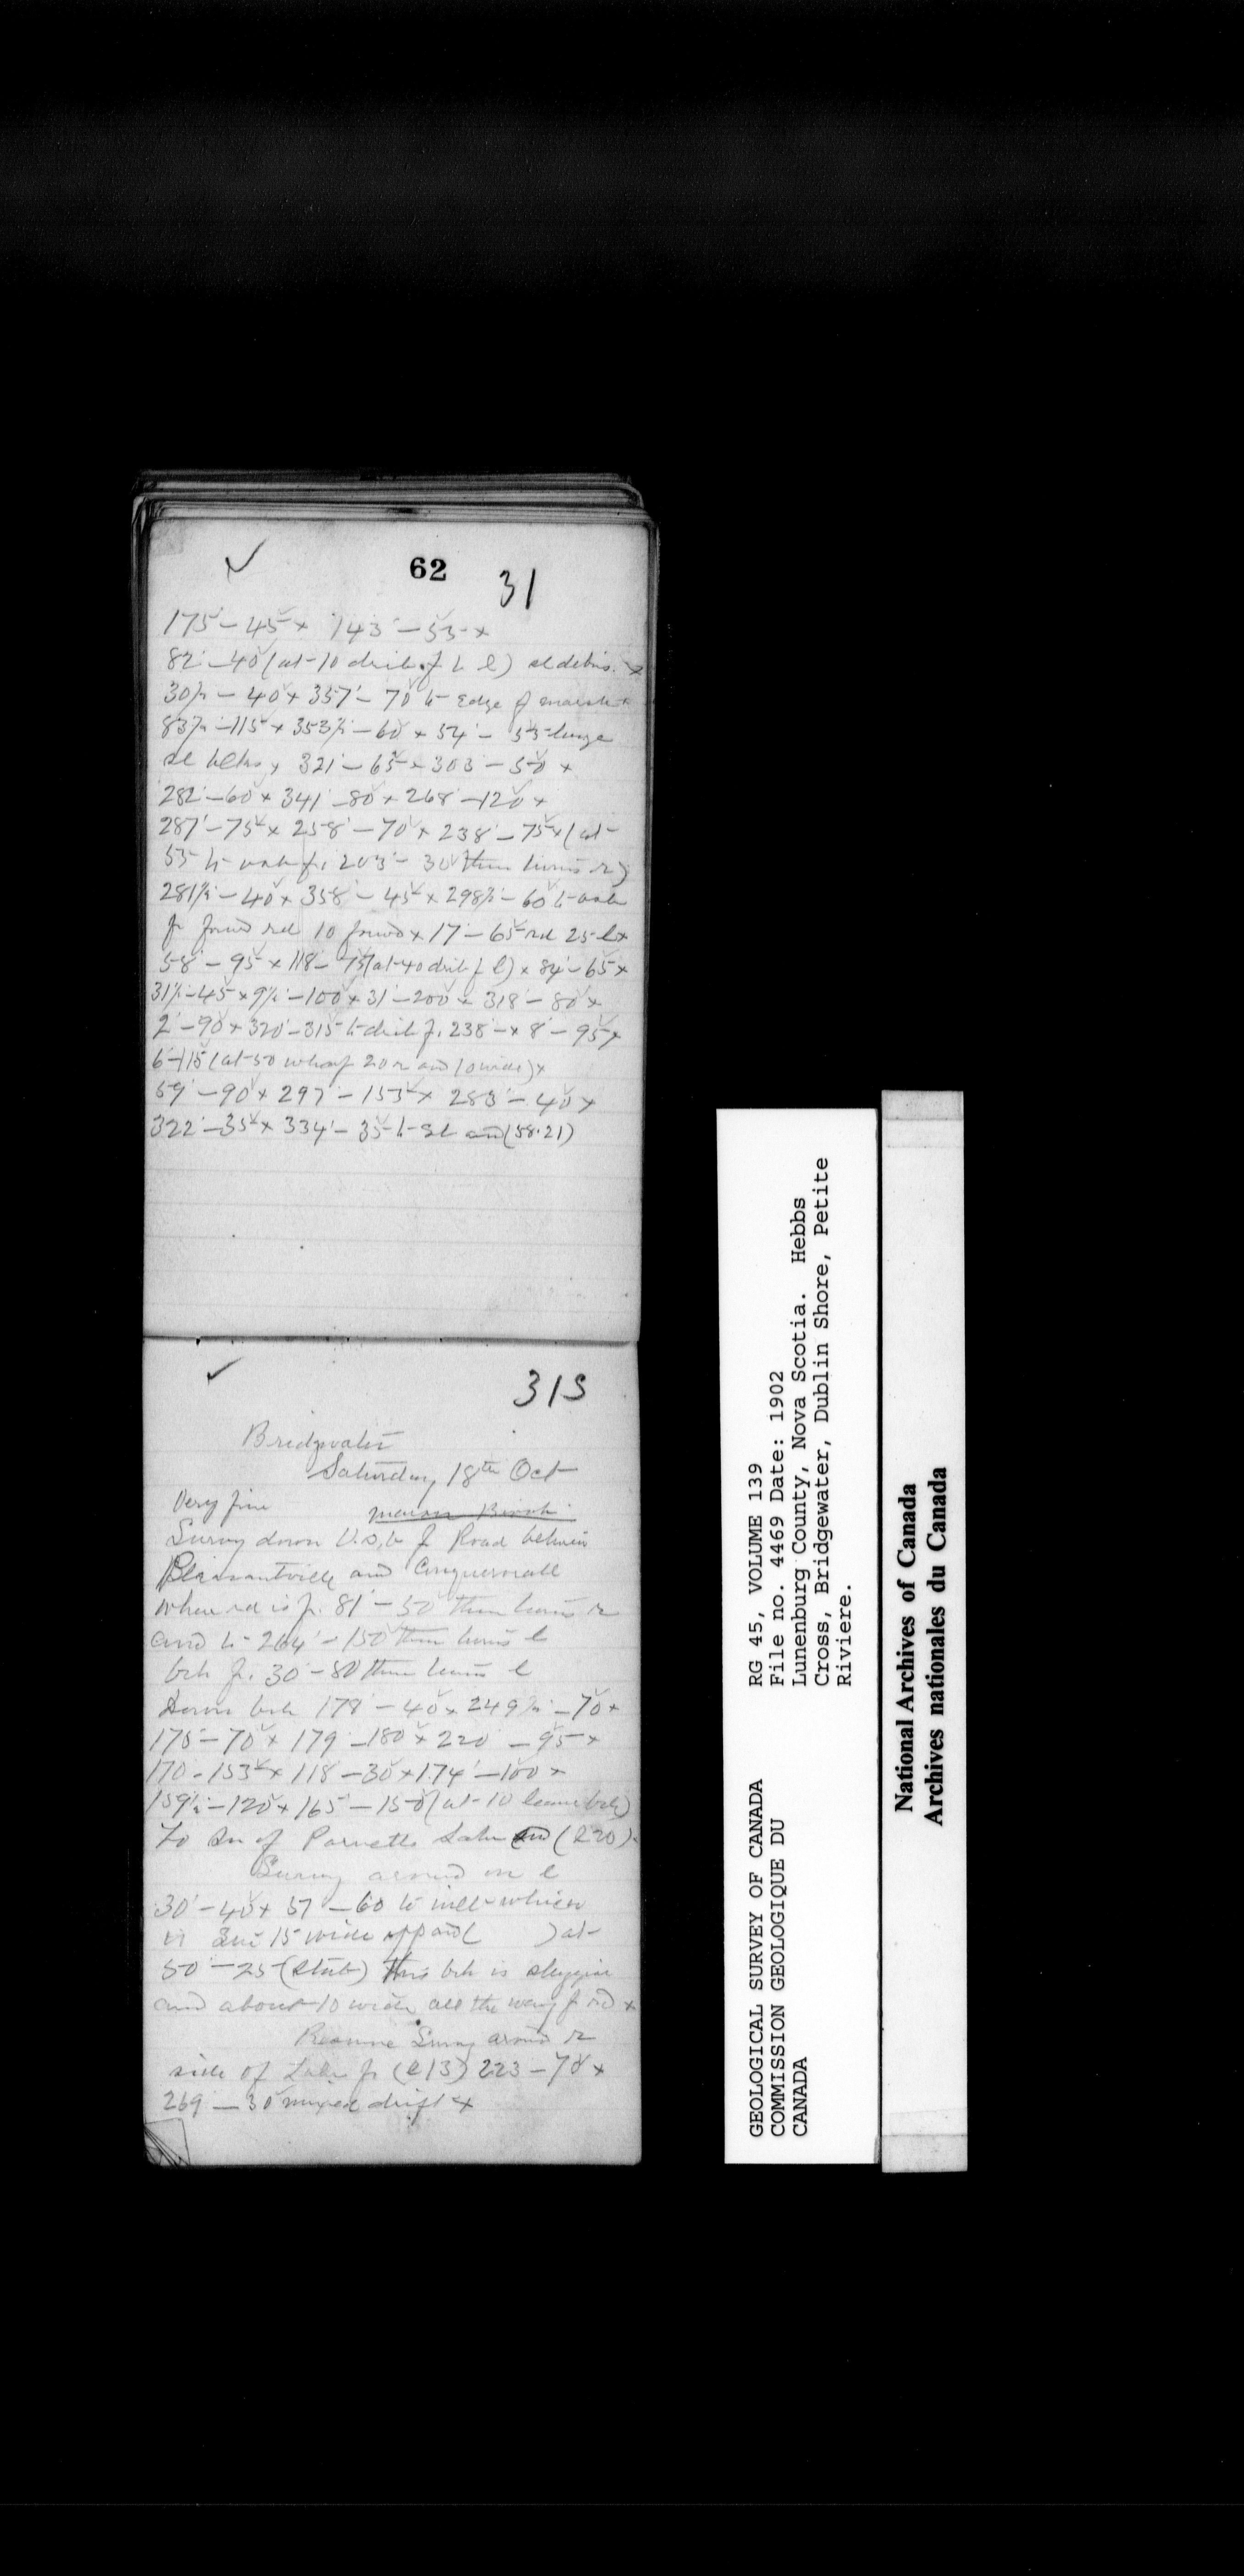 62
31
175 - 45 x 143 - 55 x
82 - 40 (at 10 drib. f l) sl debris. x
30½ - 40 x 357 - 70 to edge of marsh x
83½ - 115 x 353½ - 60 x 54 - 55 large
sl blks x 321 - 65 x 303 - 50 x
282 - 60 x 341 - 80 x 268 - 120 x
287 - 75 x 258 - 70 x 238 - 75 x (at
55 to f. 203 - 30 then turns r)
281½ - 40 x 358 - 45 x 298½ - 60 to
rd 10 x 17 - 65 rd 25 l x
58 - 95 x 118 - 75 (at 40 drib f l) x 84 - 65 x
31½ - 45 x 9½ - 100 x 31 - 200 x 318 - 80 x
2 - 90 x 320 - 315 to drib f. 238 - x 8 - 95 x
6 - 115 (at 50 wharf 20 r and 10 wide) x
59 - 90 x 297 - 153 x 283 - 40 x
322 - 35 x 334 - 35 to st and (58.21)
31S
Bridgwater
Saturday 18th Oct
Very fine
Survey down f Road between
Pleasantville and Conquerall
where rd is f. 81 - 50 then turns r
and to 264 - 150 then turns l
brk f. 30 - 80 then turns l
Down brk 178 - 40 x 249½ - 70 x
175 - 70 x 179 - 180 x 220 - 95 x
170 - 153 x 118 - 30 x 174 - 100 x
159½ - 120 x 165 - 150 (at 10 leave brk)
To of Parnetts Lake and (220).
Survey around on l
30 - 40 x 57 - 60 to inlet which
is 15 wide opp and ( ) at
50 - 25 (Stub) This brk is
and about 10 wide all the way f rd x
Resume Survey around r
side of Lake f. (l 13) 223 - 70 x
269 - 30 mixed drift x
GEOLOGICAL SURVEY OF CANADA
COMMISSION GEOLOGIQUE DU
CANADA
RG 45, VOLUME 139
File no. 4469 Date: 1902
Lunenburg County, Nova Scotia. Hebbs
Cross, Bridgewater, Dublin Shore, Petite
Riviere.
National Archives of Canada
Archives nationales du Canada